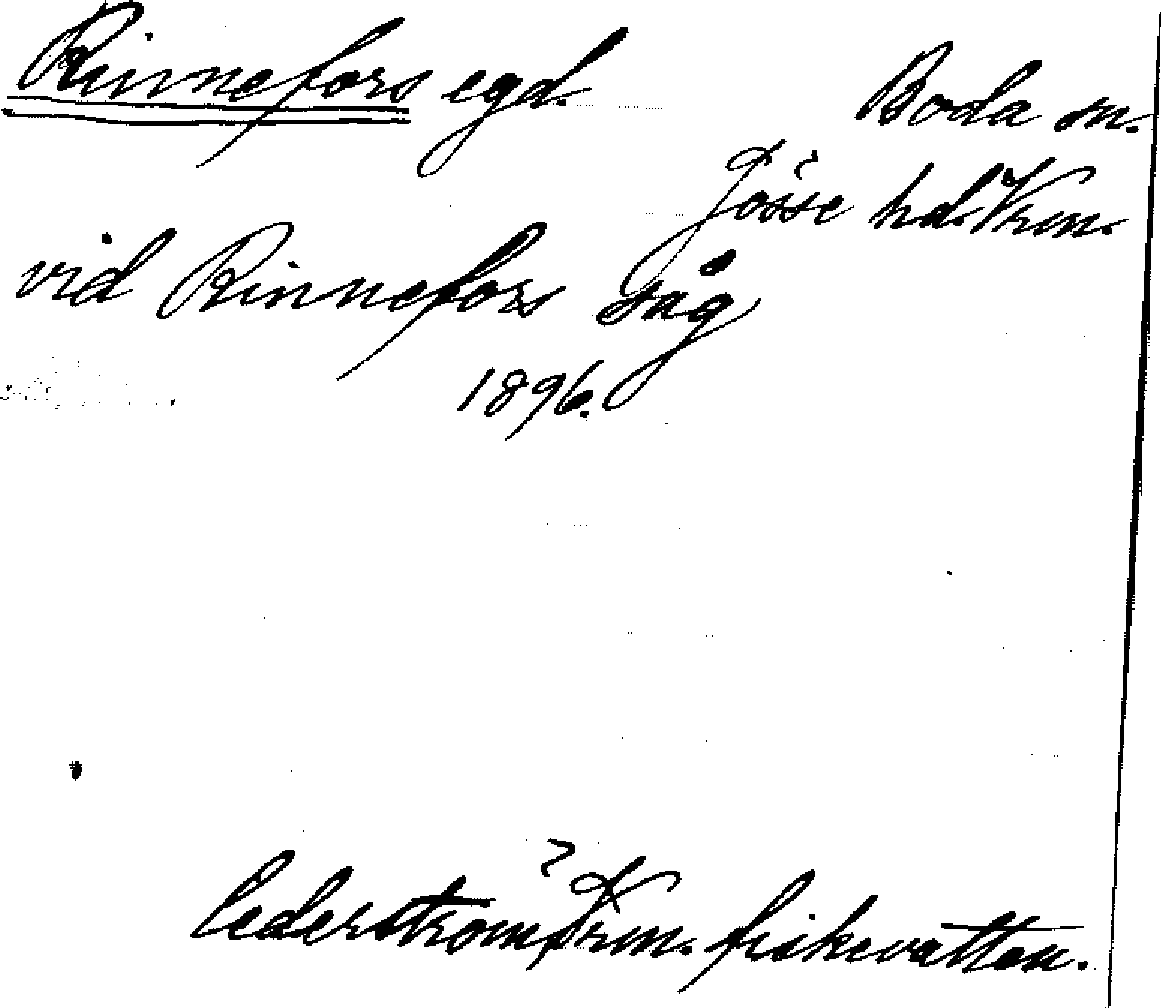 Rinnefors egd.
Boda sn.
Jösse hd. Vrm.
vid Rinnefors såg
1896.
Cederström, Vrm. fiskevatten.